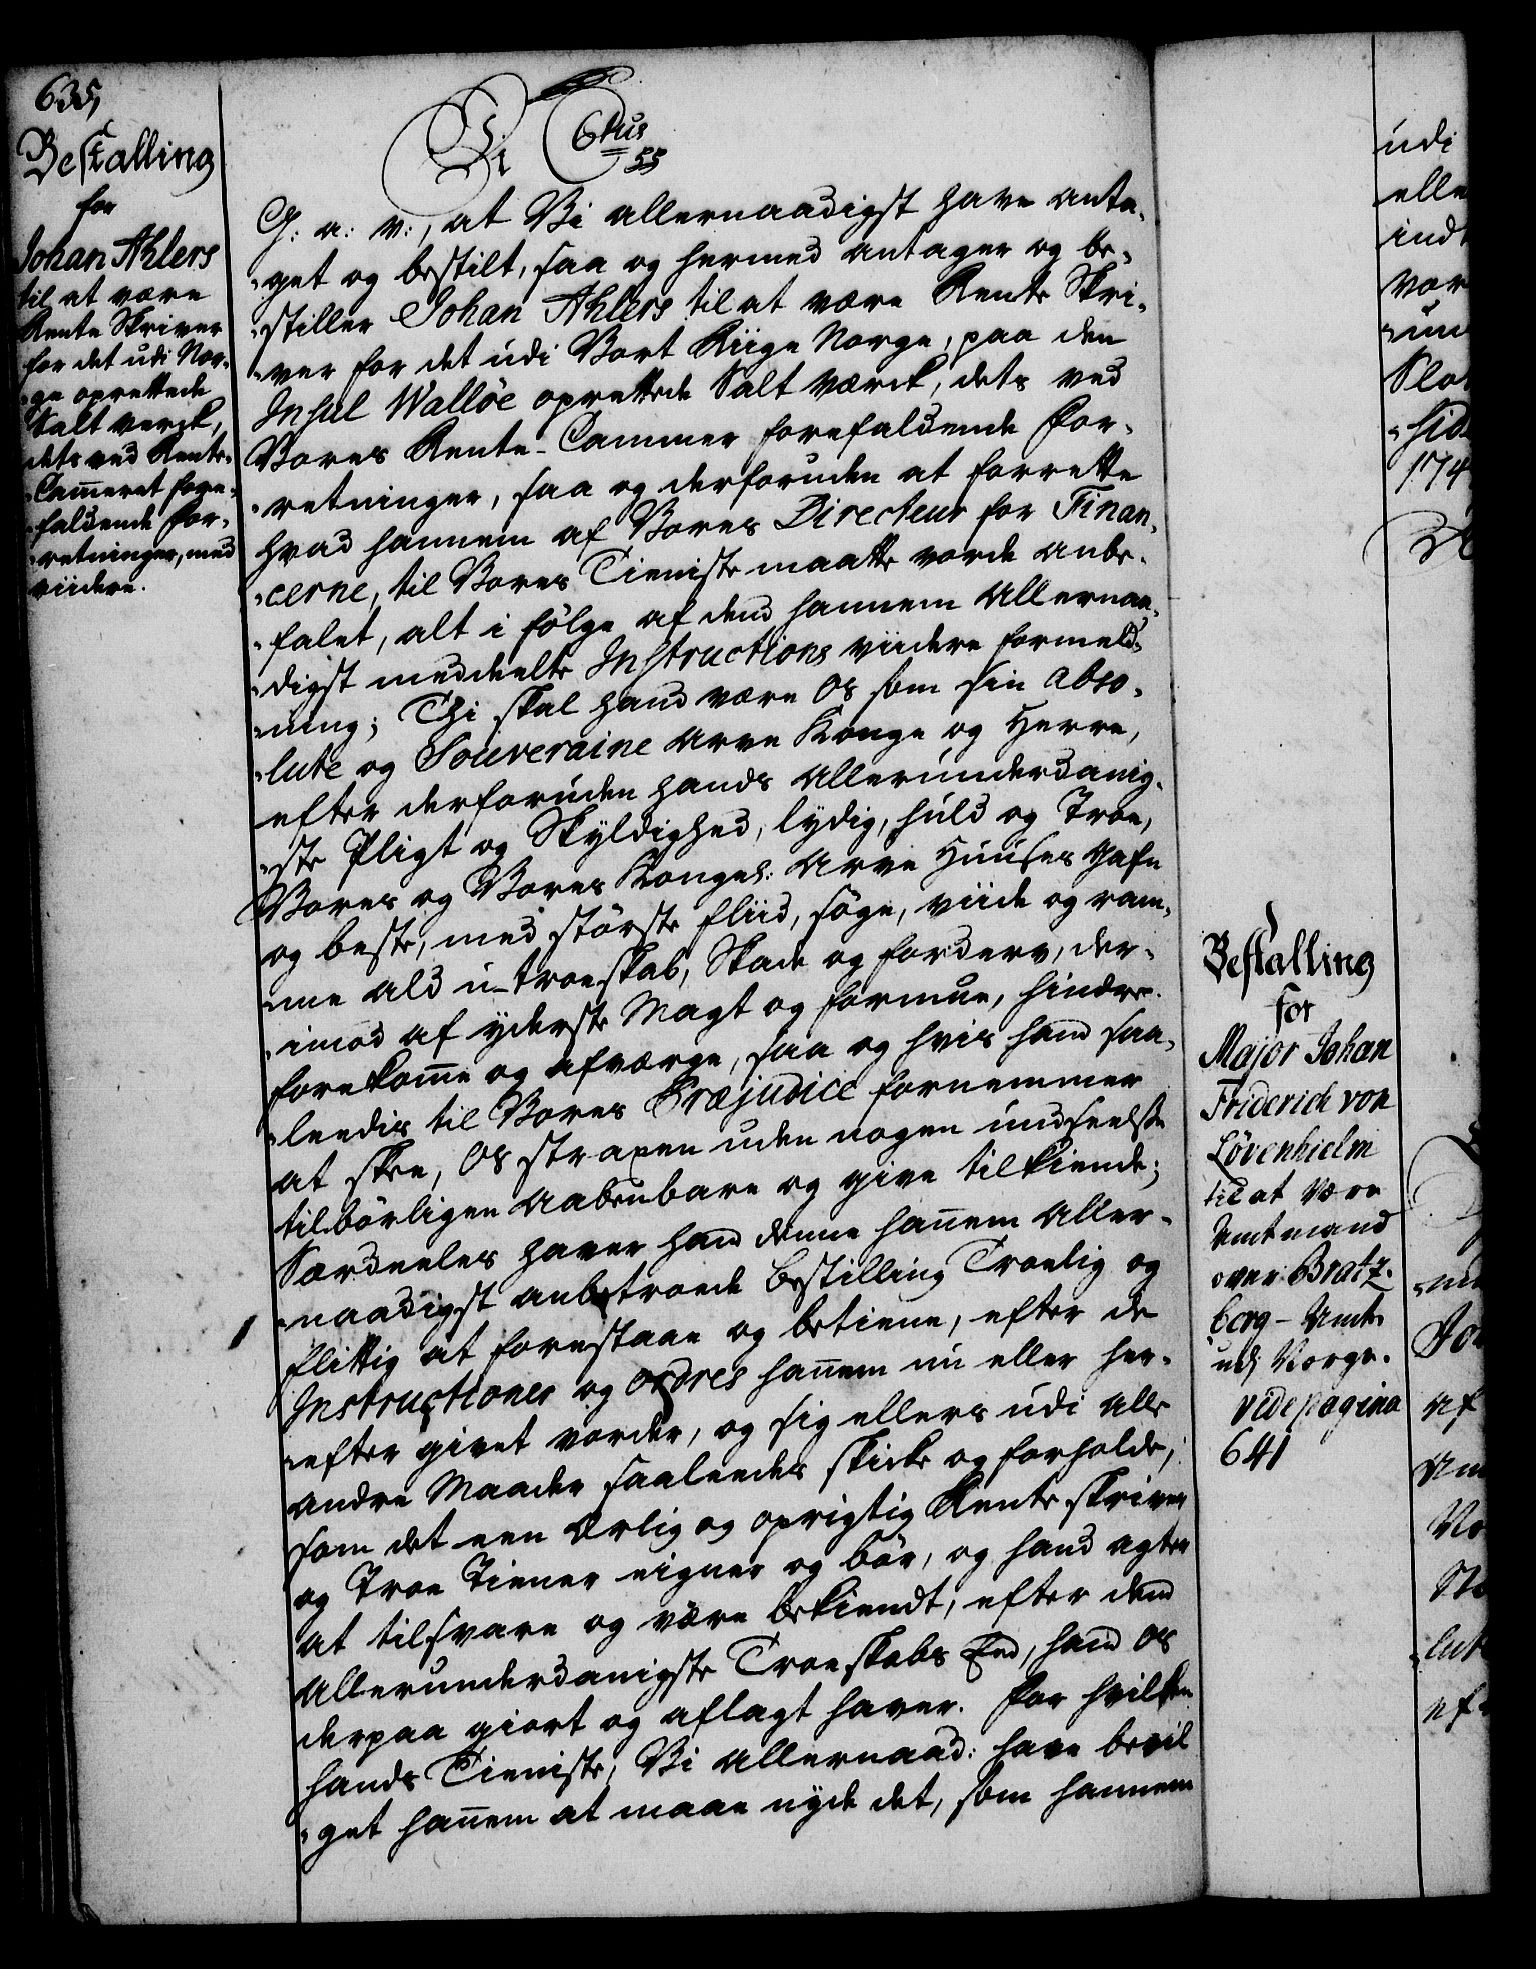 635,
Bestalling
for
Johan Ahlers
til at være
Rente Skriver
for det udi Nor-
-ge oprettede
Salt verck,
dets ved Rente-
-Cam̄eret fore-
-faldende for-
-retninger, med
viidere.
Vi C 6tus
55
G: a: v:, at Vi allernaadigst have anta-
-get og bestilt, saa og hermed antager og be-
-stiller Johan Ahlers til at være Rente Skri-
-ver for det udi Vort Riige Norge, paa den
Insul Walløe oprettede Salt Værck, dets ved
Vores Rente-Cammer forefaldende for-
-retninger, saa og desforuden at forrette
hvad hannem af Vores Directeur for Finan-
-cerne, til Vores Tieniste maatte vorde anbe-
-falet, alt i følge af dend hannem allernaa-
-digst meddeelte Instructions viidere formeld-
-ning; Thi skal hand være Os som sin abso-
-lute og Souveraine Arve Konge og Herre,
efter desforuden hands allerunderdanig-
-ste Pligt og Skyldighed, lydig, huld og Troe,
Vores og Vores Kongel: Arve Huuses Gafn
og beste, med største fliid, søge, viide og ram-
-me ald u-troeskab, Skade og forderv, der-
-imod af yderste Magt og formue, hindre
forekom̄e og afværge, saa og hvis hand saa-
-leedis til Vores Præjudice fornemmer
at skee, Os straxen uden nogen undseelse
tilbørligen aabenbare og give tilkiende;
Særdeeles haver hand denne han̄em aller-
-naadigst anbetroede bestilling Troelig og
flittig at forestaae og betiene, efter de
Instructioner og ordres han̄em nu eller her-
-efter givet vorder, og sig ellers udi alle
andre Maader saaleedes skicke og forholde,
som det een Ærlig og oprigtig Rente skriver
og Troe Tiener eigner og bør, og hand agter
at tilsvare og være bekiendt, efter dend
allerunderdanigste Troeskabs Eed, hand Os
derpaa giort og aflagt haver. For hvilken
hands Tieniste, Vi allernaad: have bevil
-get han̄em at maae nyde det, som hannem
Bestalling
for
Major Johan
Friderich von
Lövenhielm
til at være
Amtmand
over Bratz-
berg-Amt
udj Norge.
vide pagina
641
udi
elle
ind
vor
Slot
174
af